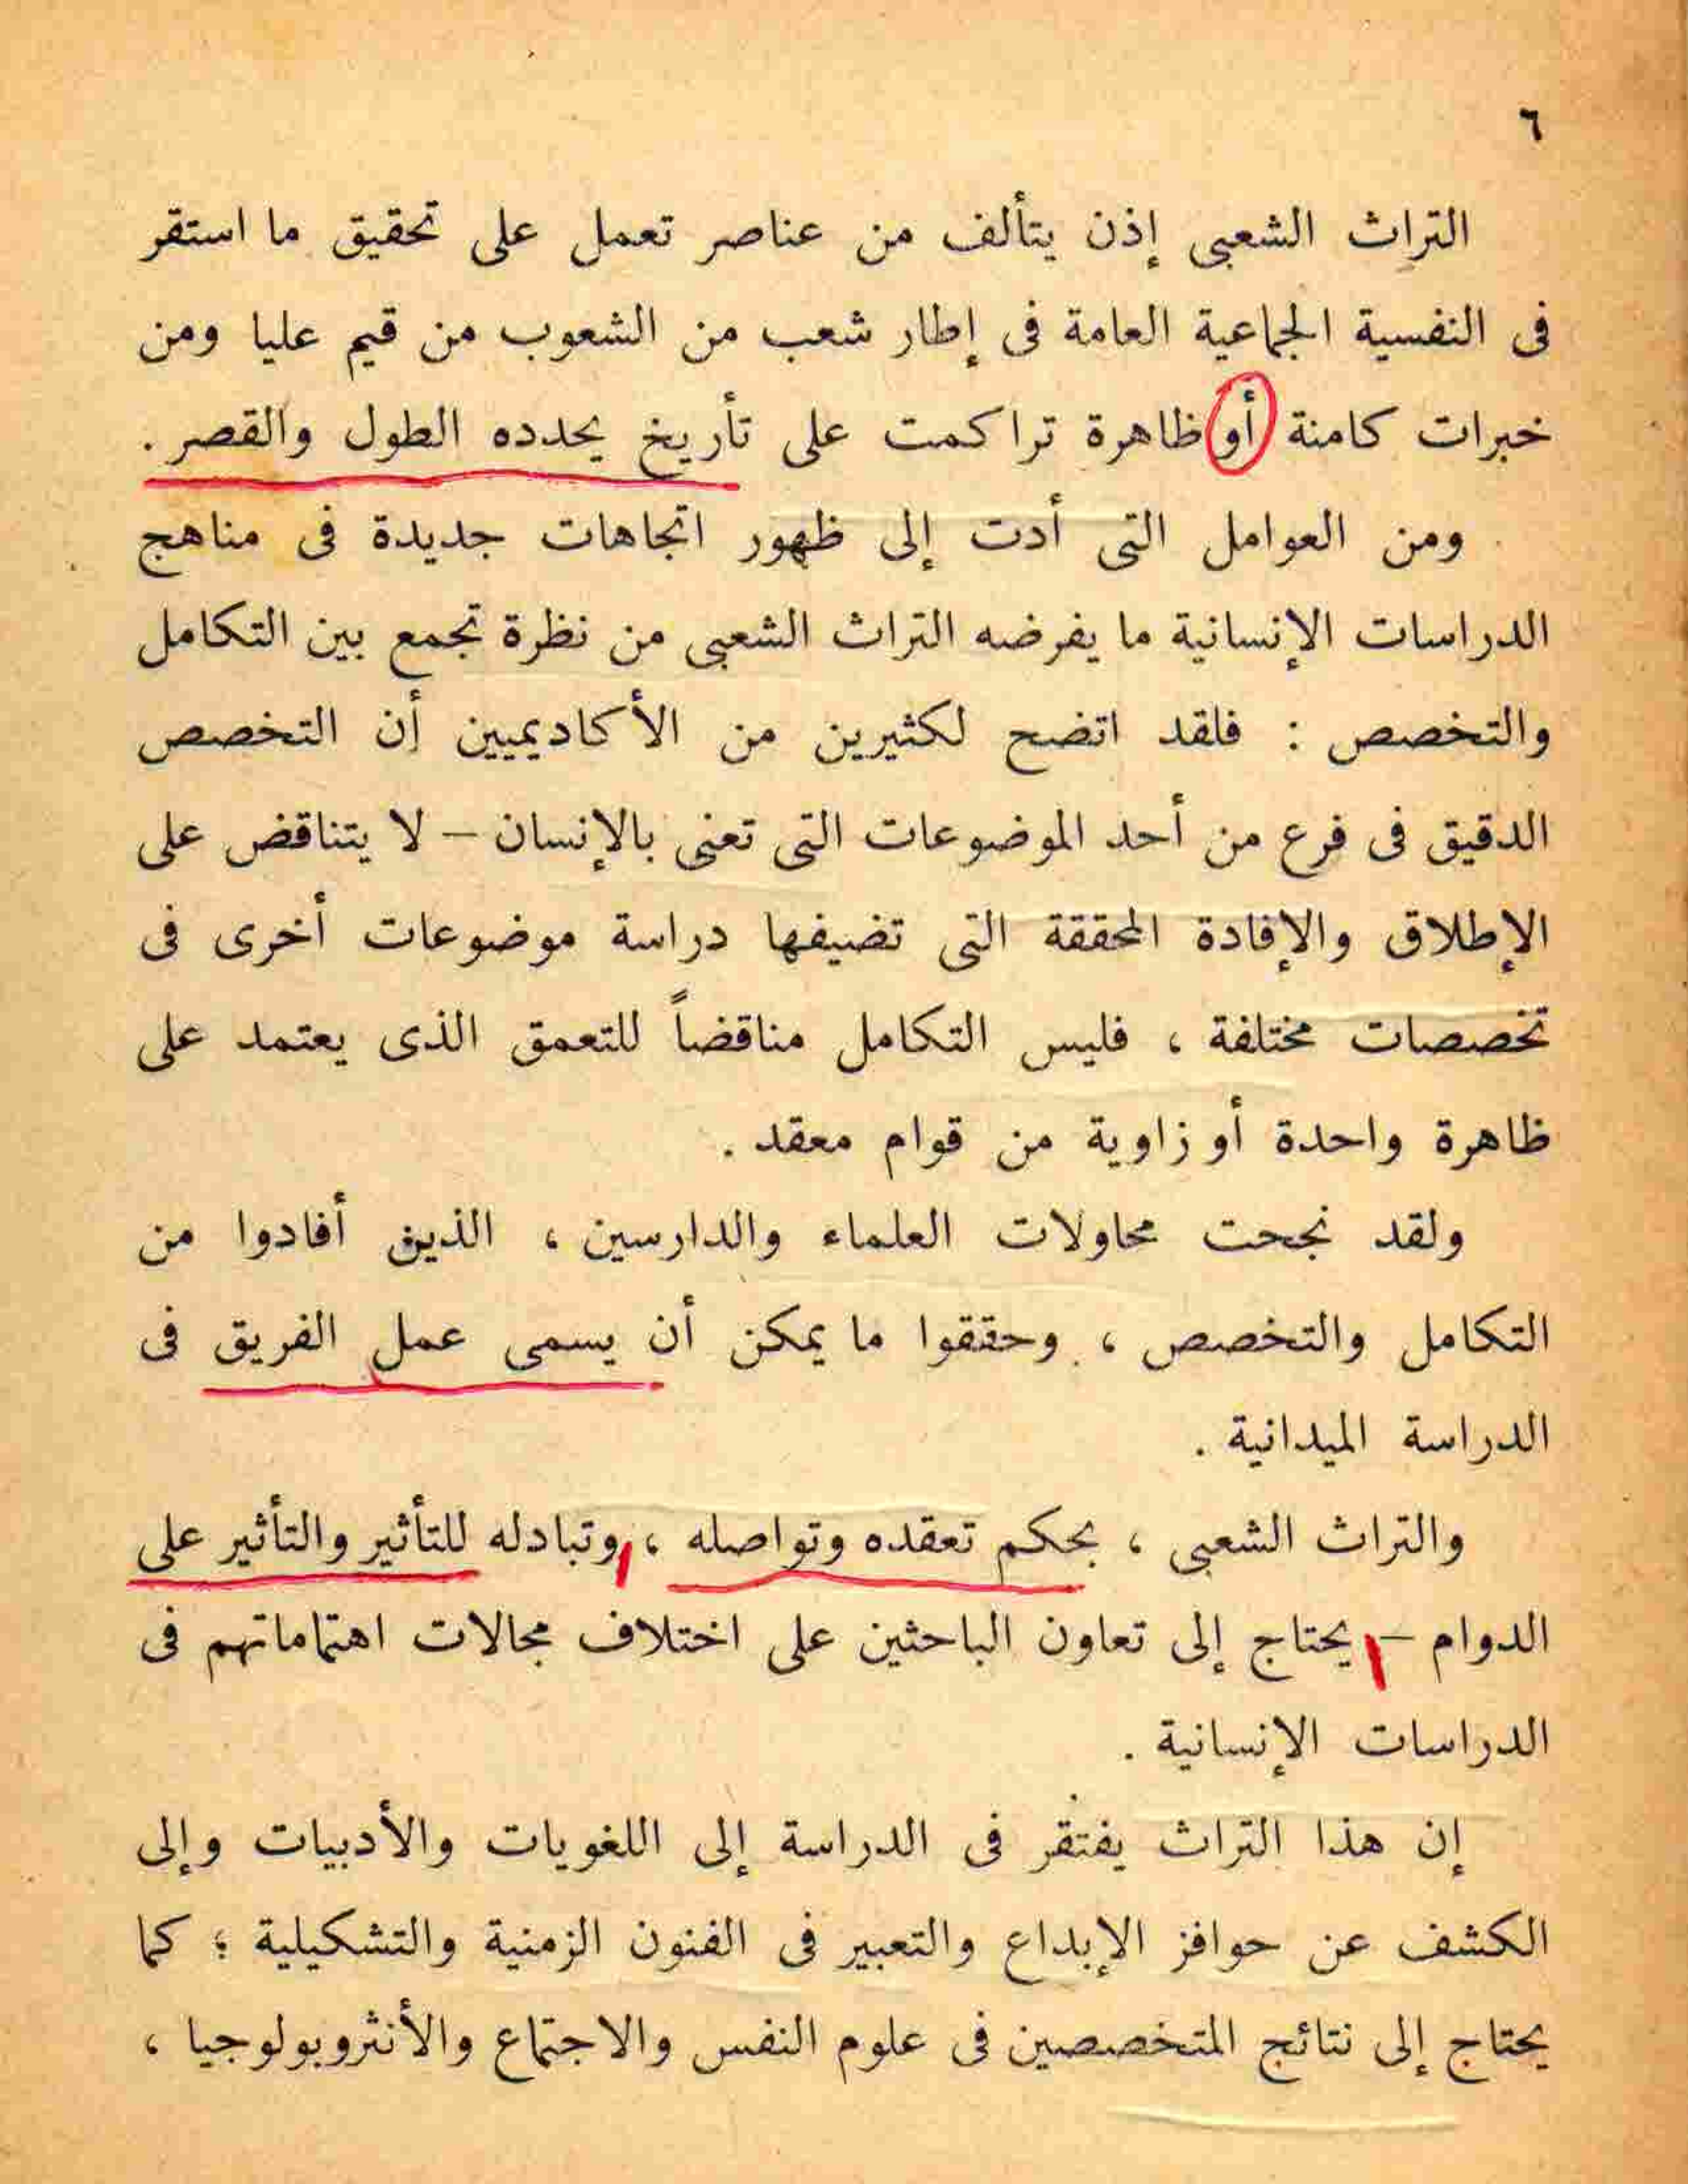 ٦
التراث الشعبى إذن يتألف من عناصر تعمل على تحقيق ما استقر
فى النفسية الجماعية العامة فى إطار شعب من الشعوب من قيم عليا ومن
خبرات كامنة أو ظاهرة تراكمت على تأريخ يحدده الطول والقصر .
ومن العوامل التى أدت إلى ظهور اتجاهات جديدة فى مناهج
الدراسات الإنسانية ما يفرضه التراث الشعبى من نظرة تجمع بين التكامل
والتخصص : فلقد اتضح لكثيرين من الأكاديميين أن التخصص
الدقيق فى فرع من أحد الموضوعات التى تعنى بالإنسان – لا يتناقض على
الإطلاق والإفادة المحققة التى تضيفها دراسة موضوعات أخرى فى
تخصصات مختلفة ، فليس التكامل مناقضاً للتعمق الذى يعتمد على
ظاهرة واحدة أو زاوية من قوام معقد .
ولقد نجحت محاولات العلماء والدارسين ، الذين أفادوا من
التكامل والتخصص ، وحققوا ما يمكن أن يسمى عمل الفريق فى
الدراسة الميدانية .
والتراث الشعبى ، بحكم تعقده وتواصله ، وتبادله للتأثير والتأثير على
الدوام – يحتاج إلى تعاون الباحثين على اختلاف مجالات اهتماماتهم فى
الدراسات الإنسانية .
إن هذا التراث يفتقر فى الدراسة إلى اللغويات والأدبيات وإلى
الكشف عن حوافز الإبداع والتعبير فى الفنون الزمنية والتشكيلية ؛ كما
يحتاج إلى نتائج المتخصصين فى علوم النفس والاجتماع والأنثروبولوجيا ،